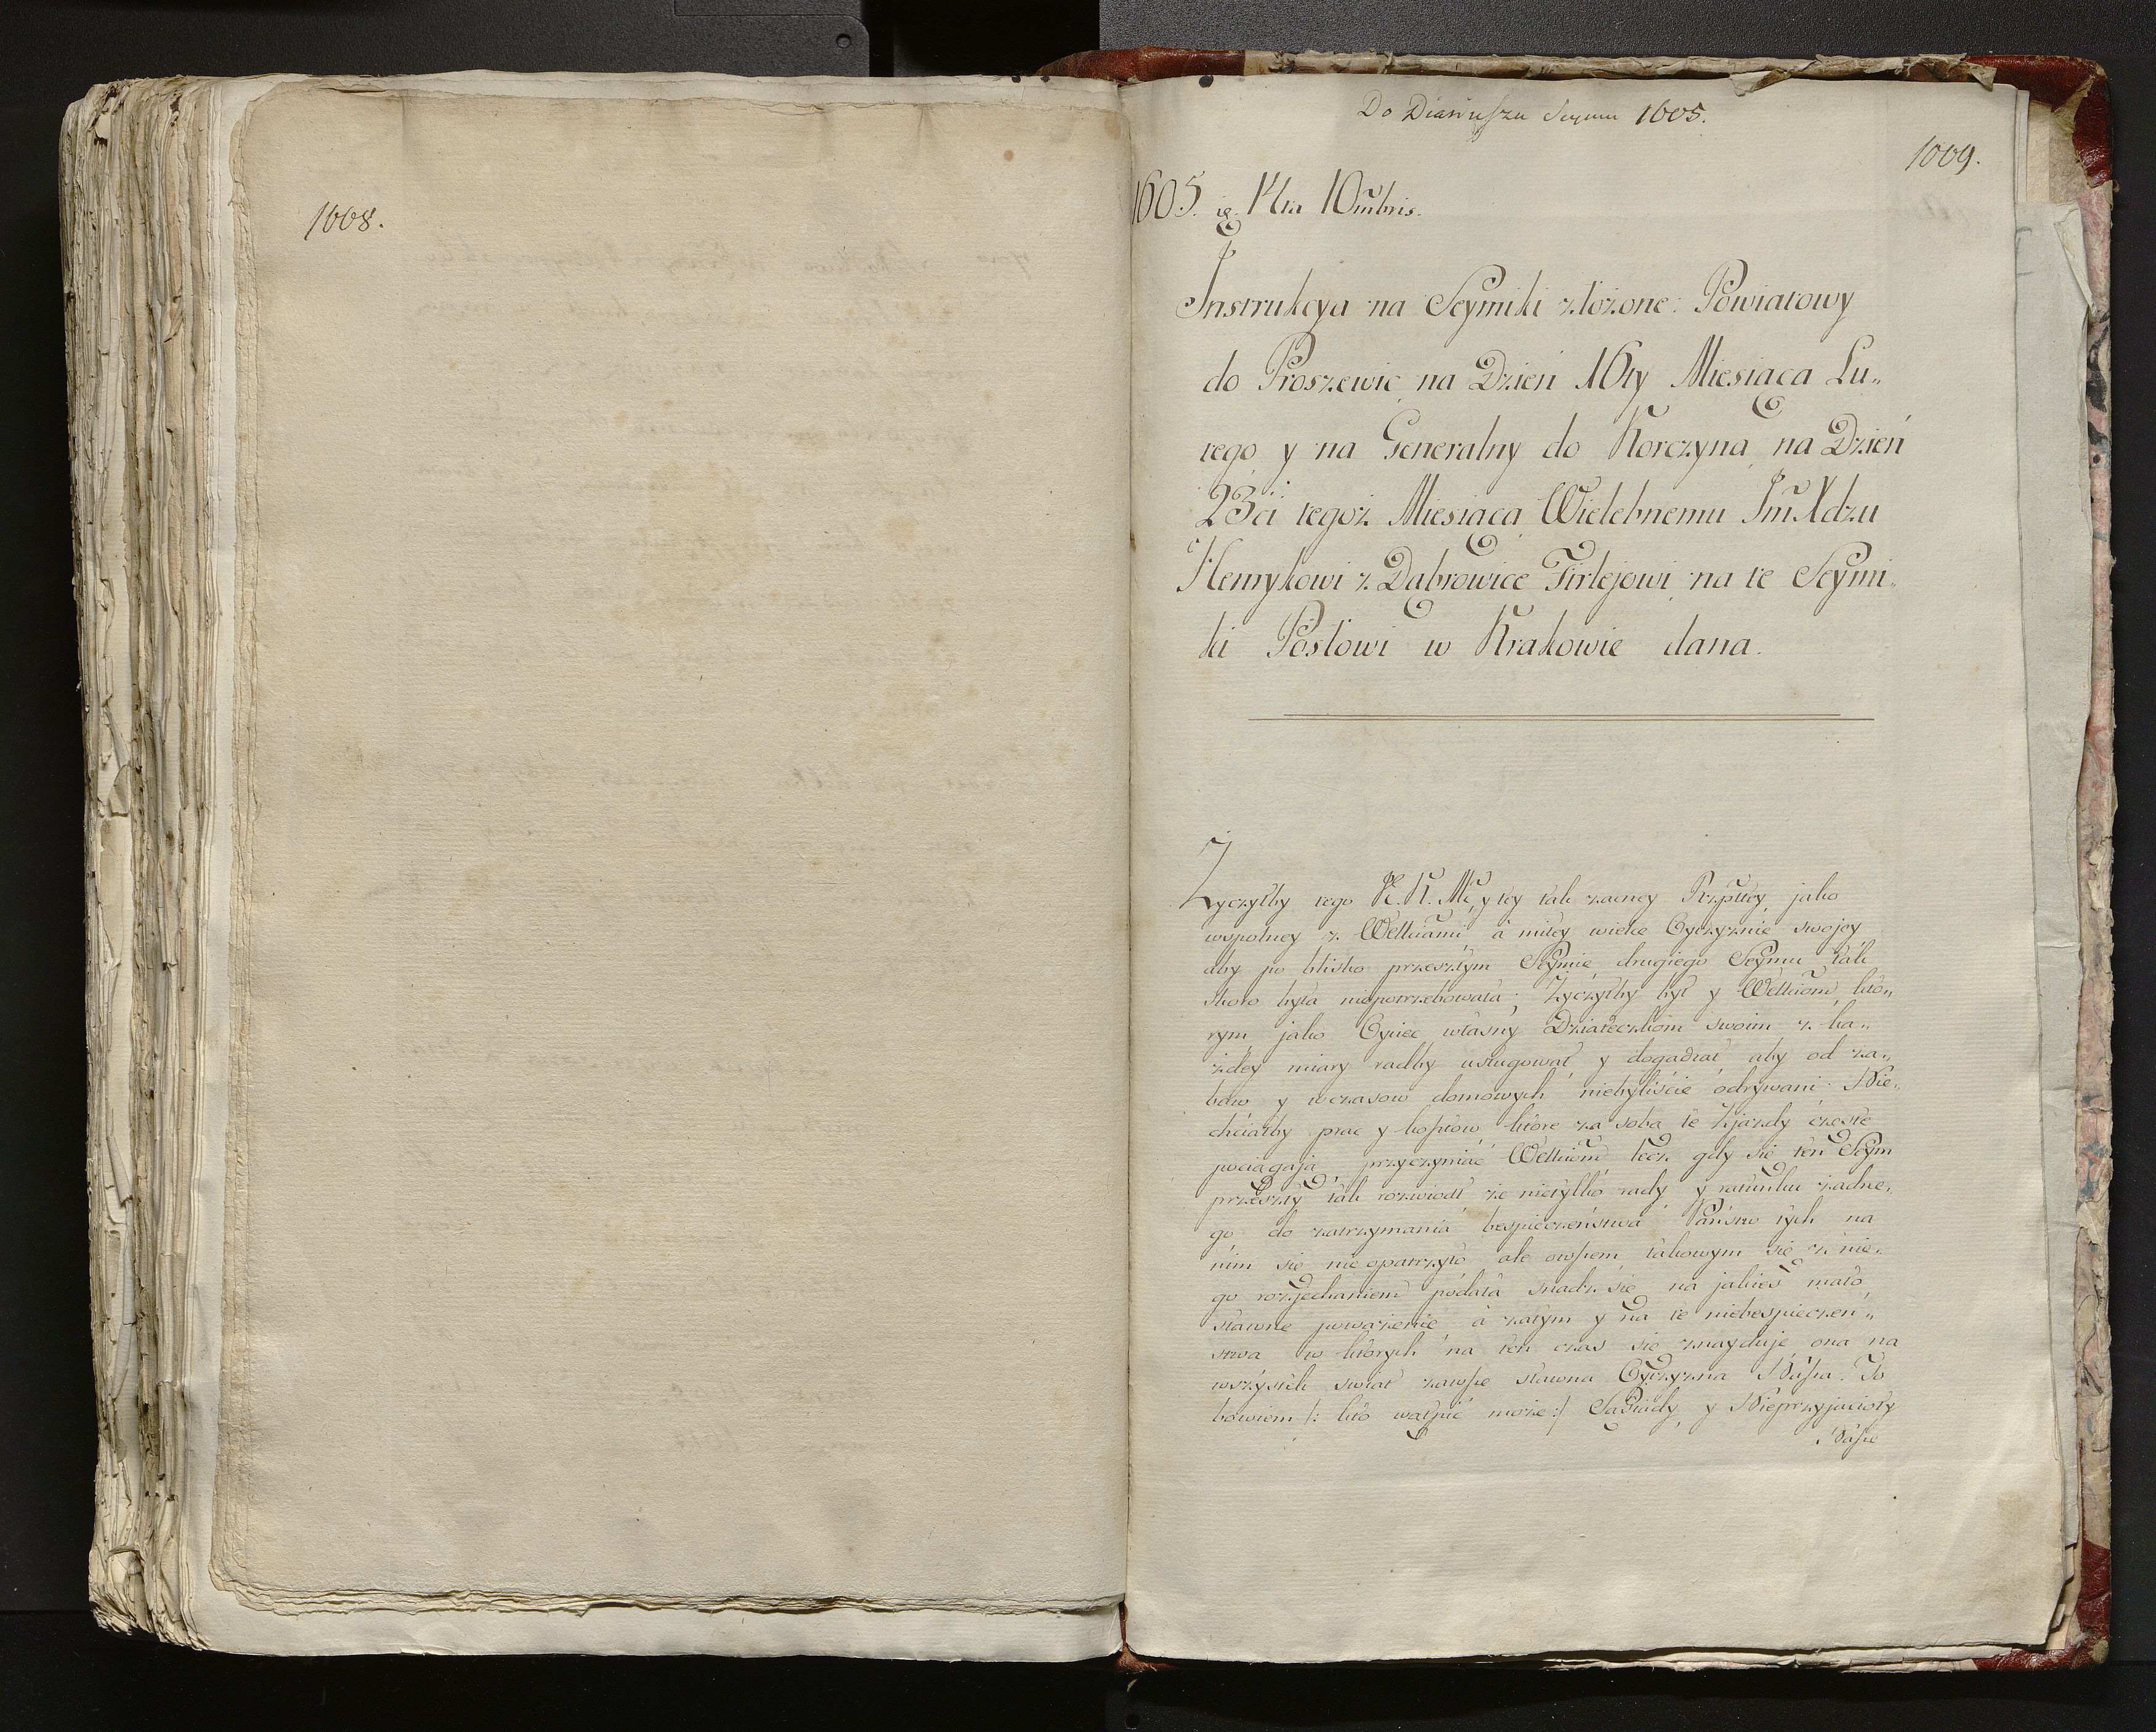 1008.
Do Diariuszu Seymu 1605.
1009.
1605. ię. 14ta 10mbris.
Instrukcya na Seymiki złożone. Powiatowy
do Proszewic na Dzień 16ty Miesiąca Lu„
tego y na Generalny do Korczyna na Dzień
23ci tegoż Miesiąca Wielebnemu Jm Xdzu
Henrykowi z Dąbrowice Firlejowi na te Seymi„
ki Posłowi w Krakowie dana.
Życzyłby tego J. K. Mć y tey tak zacney Rzpltey jako
wspolney z Wellciami á miłey wielce Oyczyznie swojey
aby po blisko przeszłym Seymie drugiego Seymu tak
skoro była niepotrzebowała; Życzyłby był y Wellciom któ„
rym jako Ojciec własny Dziateczkom swoim z ka„
żdey miary radby usługował y dogadzał aby od za„
baw y wczasow domowych niebyliście odrywani. Nie„
chciałby prac y kosztow ktore za sobą te Zjazdy częste
pociągają przyczyniać Wellciom lecz gdy się ten Seym
przeszły tak rozwiodł że nietylko rady y ratunku żadne„
go do zatrzymania bespieczeństwa Państw tych na
nim się nie opatrzyło ale owszem takowym się z nie„
go rozjechaniem podała snadz się na jakieś mało
sławne poważenie á zatym y na te niebespieczeń„
stwa w których na ten czas się znayduje ona na
wszystek swiat zawsze sławna Oyczyzna Nasza. To
bowiem /: kto wątpić może :/ Sąsiady y Nieprzyjacioły
Nasze